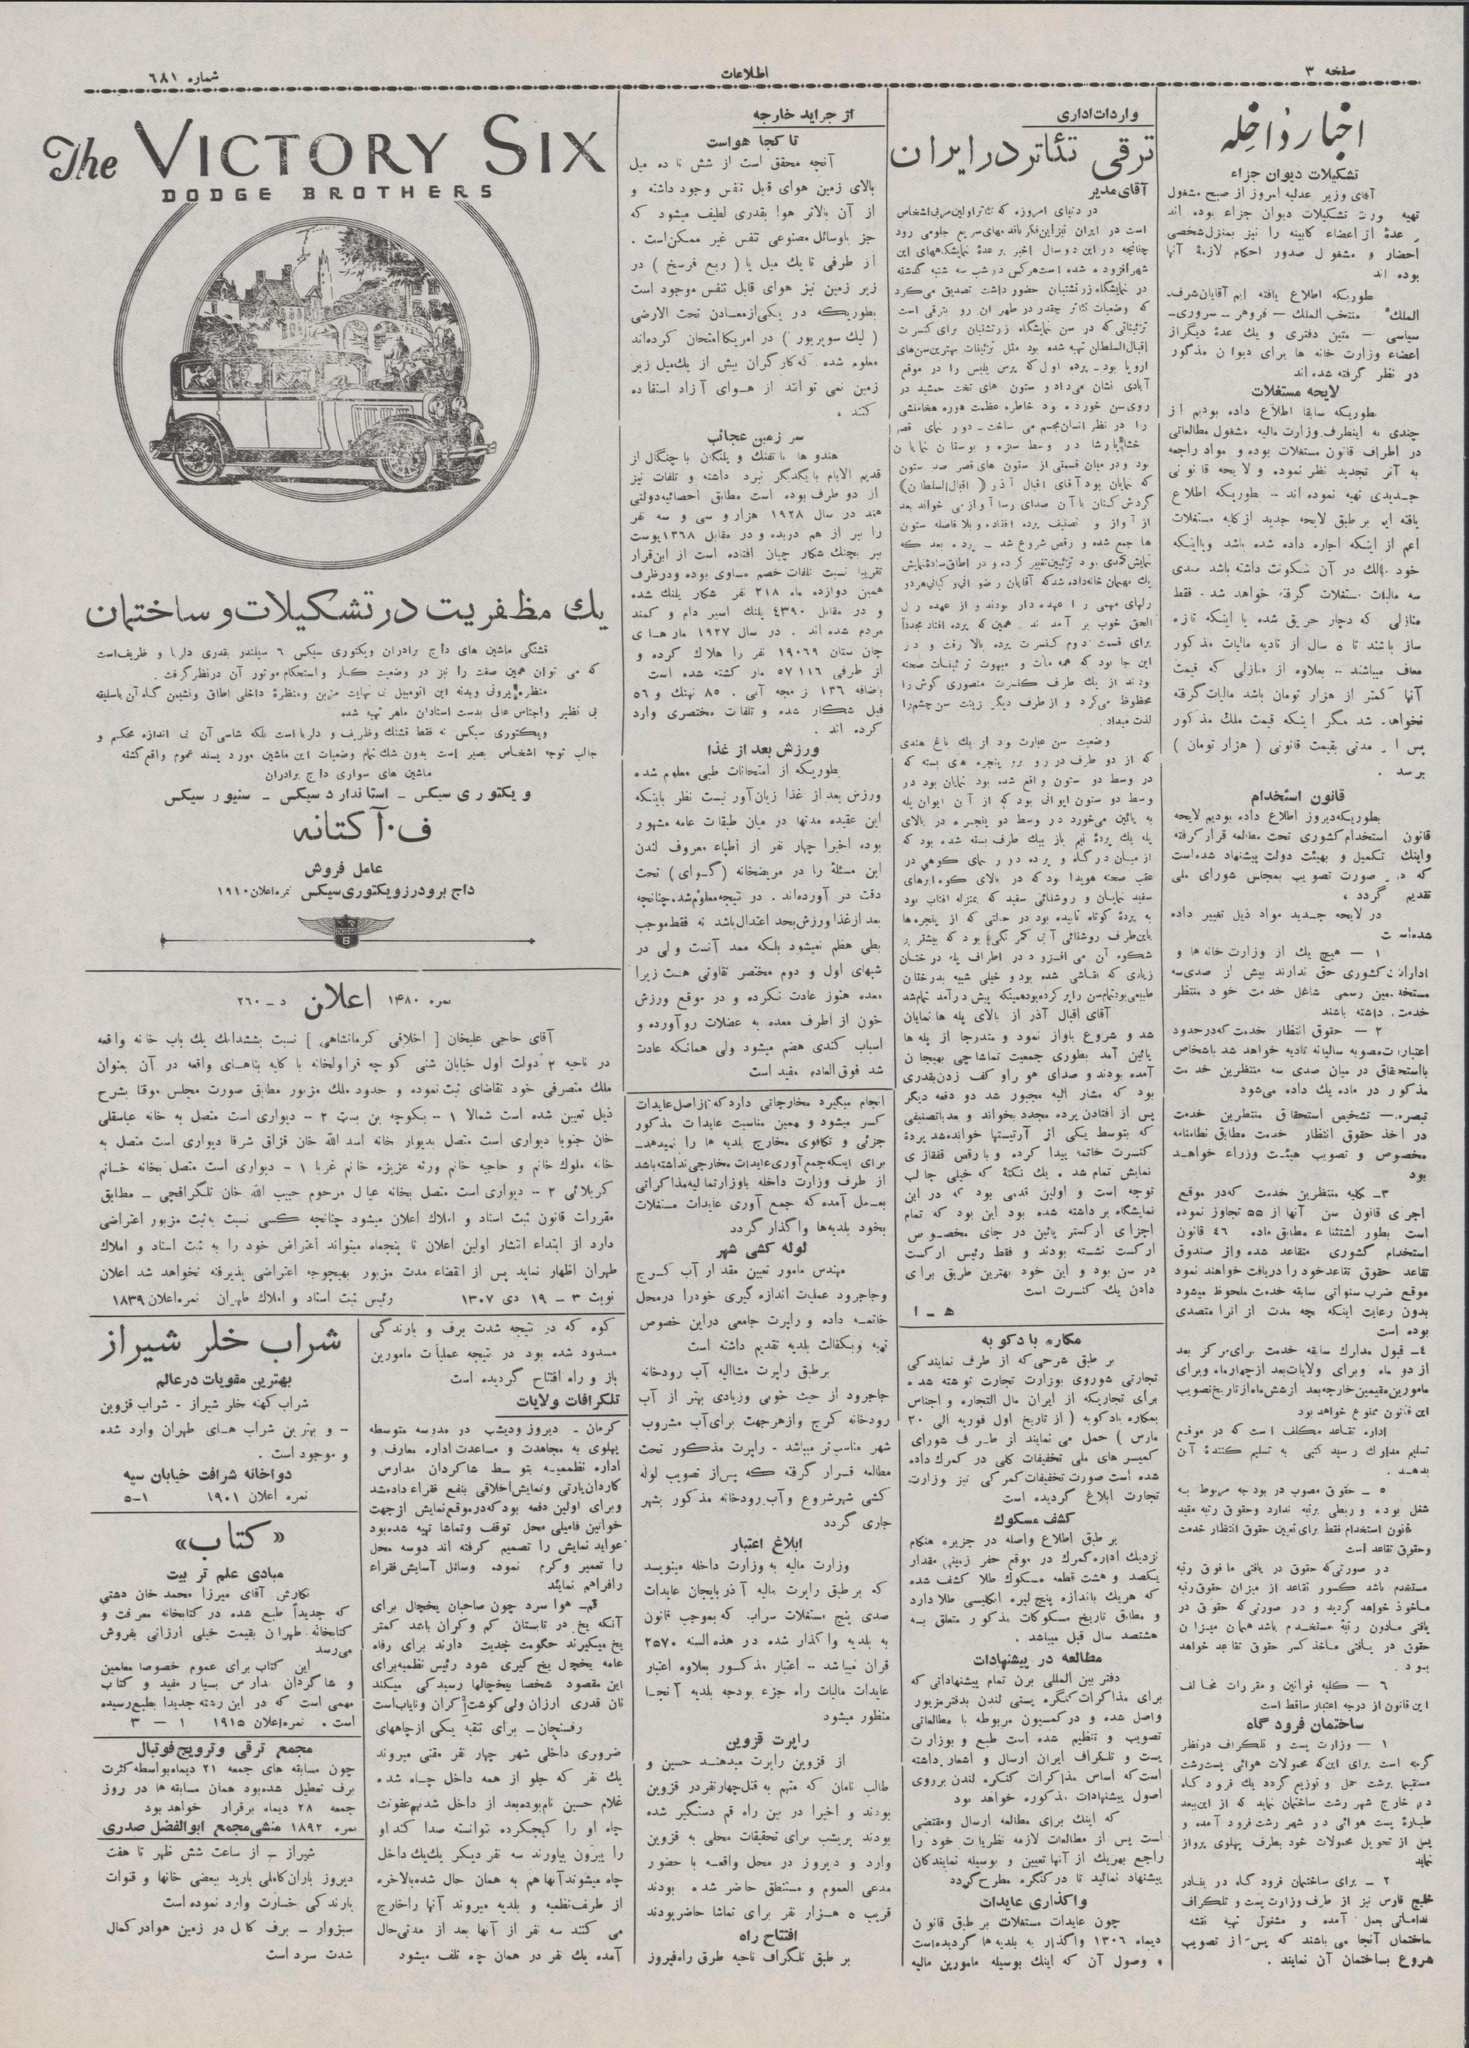 صفحه ۳
اطلاعات
شماره ۶۸۱
اخبار داخله
تشکیلات دیوان جزاء
آقای وزیر عدلیه امروز از صبح مشغول
تهیه ورت تشکیلات دیوان جزاء بوده اند
عدهٔ از اعضاء کابینه را نیز بمنزل شخصی
احضار و مشغول صدور احکام لازمهٔ آنها
بوده اند
طوریکه اطلاع یافته ایم آقایان شرف‌ـ
الملك ـ منتخب الملك ـ فروهر ـ سروری‌ـ
سیاسی ـ متین دفتری و یك عدهٔ دیگر از
اعضاء وزارت خانه ها برای دیوان مذکور
در نظر گرفته شده اند
لایحه مستغلات
طوریکه سابقا اطلاع داده بودیم از
چندی به اینطرف وزارت مالیه مشغول مطالعاتی
در اطراف قانون مستغلات بوده و مواد راجعه
به آنرا تجدید نظر نموده و لایحه قانونی
جدیدی تهیه نموده اند ـ بطوریکه اطلاع
یافته ایم برطبق لایحه جدید از کلیه مستغلات
اعم از اینکه اجاره داده شده باشد ویااینکه
خود مالك در آن سکونت داشته باشد صدی
سه مالیات مستغلات گرفته خواهد شد. فقط
منازلی که دچار حریق شده یا اینکه تازه
ساز باشند تا ۵ سال از تادیه مالیات مذکور
معاف میباشند ـ بعلاوه از منازلی که قیمت
آنها کمتر از هزار تومان باشد مالیات گرفته
نخواهد شد مگر اینکه قیمت ملك مذکور
پس از مدتی بقیمت قانونی ( هزار تومان )
برسد .
قانون استخدام
بطوریکه دیروز اطلاع داده بودیم لایحه
قانون استخدام کشوری تحت مطالعه قرار گرفته
واینك تکمیل و بهیئت دولت پیشنهاد شده است
که در صورت تصویب بمجلس شورای ملی
تقدیم گردد ،
در لایحه جدید مواد ذیل تغییر داده
شده است
۱ ـ هیچ یك از وزارت خانه ها و
ادارات کشوری حق ندارند بیش از صدی سه
مستخدمین رسمی شاغل خدمت خود منتظر
خدمت داشته باشند
۲ ـ حقوق انتظار خدمت که درحدود
اعتبارات مصوبه سالیانه تادیه خواهد شد باشخاص
بااستحقاق در میان صدی سه منتظرین خدمت
مذکور در ماده یك داده می‌شود
تبصره ـ تشخیص استحقاق منتظرین خدمت
در اخذ حقوق انتظار خدمت مطابق نظامنامه
مخصوص و تصویب هیئت وزراء خواهد
بود
۳ـ کلیه منتظرین خدمت که‌در موقع
اجرای قانون سن آنها از ۵۵ تجاوز نموده
است بطور استثناء مطابق ماده ۴۶ قانون
استخدام کشوری متقاعد شده واز صندوق
تقاعد حقوق تقاعد خود را دریافت خواهند نمود
موقع ضرب سنواتی سابقه خدمت ملحوظ میشود
بدون رعایت اینکه چه مدت از آنرا متصدی
بوده است
۴ـ قبول مدارك سابقه خدمت برای مرکز بعد
از دو ماه وبرای ولایات بعد از چهارماه وبرای
مامورین مقیمین خارجه بعد ازشش ماه از تاریخ تصویب
این قانون ممنوع خواهد بود
اداره تقاعد مکلف است که در موقع
تسلیم مدارك رسید کتبی به تسلیم کنندهٔ آن
بدهد .
۵ ـ حقوق مصوب در بودجه مربوط به
شغل بوده و ربطی برتبه ندارد وحقوق رتبه مقید
قانون استخدام فقط برای تعیین حقوق انتظار خدمت
وحقوق تقاعد است
در صورتی‌که حقوق در یافتی ما فوق رتبه
مستخدم باشد کسور تقاعد از میزان حقوق رتبه
ماخوذ خواهد گردید و در صورتی که حقوق در
یافتی مادون رتبهٔ مستخدم باشد همان میزان
حقوق در یافتی ماخذ کسر حقوق تقاعد خواهد
بود .
۶ ـ کلیه قوانین و مقررات مخالف
این قانون از درجه اعتبار ساقط است
ساختمان فرود گاه
۱ ـ وزارت پست و تلگراف درنظر
گرفته است برای این‌که محمولات هوائی پست‌رشت
مستقیما برشت حمل و توزیع گردد یك فرود گاه
در خارج شهر رشت ساختمان نماید که از این‌بعد
طیارهٔ پست هوائی در شهر رشت فرود آمده و
پس از تحویل محمولات خود بطرف پهلوی پرواز
نماید
۲ ـ برای ساختمان فرود گاه در بنادر
خلیج فارس نیز از طرف وزارت پست و تلگراف
اقداماتی بعمل آمده و مشغول تهیه نقشه
ساختمان آنجا می باشند که پس از تصویب
شروع بساختمان آن نمایند .
واردات اداری
ترقی تئاتر در ایران
آقای مدیر
در دنیای امروزه که تئاتر اولین مربی اشخاص
است در ایران نیز این فکر باقدمهای سریع جلو می رود
چنانچه در این دو سال اخیر بر عدهٔ نمایشگاههای این
شهر افزوده شده است هر کس در شب سه شنبه گذشته
در نمایشگاه زرتشتیان حضور داشت تصدیق می‌کرد
که وضعیات تئاتر چقدر در طهران رو بترقی است
تزئیناتی که در سن نمایشگاه زرتشتیان برای کنسرت
اقبال السلطان تهیه شده بود مثل تزئینات بهترین سن‌های
اروپا بود ـ پرده اول که پرس پلیس را در موقع
آبادی نشان می‌داد و ستون های تخت جمشید در
روی سن خورده بود خاطره عظمت دوره هخامنشی
را در نظر انسان مجسم می ساخت ـ دور نمای قصر
خشایارشا در وسط سبزه و بوستان نمایان
بود و در میان قسمتی از ستون های قصر صد ستون
که نمایان بود آقای اقبال آذر ( اقبال‌السلطان )
گردش کنان با آن صدای رسا آوازی خواند بعد
از آواز و تصنیف پرده افتاده و بلا فاصله ستون
ها جمع شده و رقص شروع شد ـ پرده بعد که
نمایش کمدی بود تزئین تغییر کرده و در اطاق ساده نمایش
یك مهمان خانه داده شد که آقایان رضوانی و کیانی هر دو
رلهای مهمی را عهده دار بودند و از عهده رل
الحق خوب بر آمدند . همین که پرده افتاد مجدداً
برای قسمت دوم کنسرت پرده بالا رفت و در
این جا بود که همه مات و مبهوت تزئینات صحنه
بودند از یك طرف کنسرت منصوری گوش را
محظوظ می‌کرد و از طرف دیگر زینت سن چشم را
لذت میداد
وضعیت سن عبارت بود از یك باغ هندی
که از دو طرف در رو برو پنجره های بسته که
در وسط دو ستون واقع شده بود نمایان بود در
وسط دو ستون ایوانی بود که از آن ایوان پله
به پائین می‌خورد در وسط دو پنجره در بالای
پله یك پردهٔ نیم باز بیك طرف بسته شده بود که
از میان درگاه و پرده دور نمای کوهی در
عقب صحنه هویدا بود که در بالای کوه ابرهای
سفید نمایان و روشنائی سفید که بمنزله آفتاب بود
به پردهٔ کوتاه تابیده بود در حالتی که از پنجره‌ها
باین‌طرف روشنائی آبی کمرنگی بود که بیشتر بر
شکوه آن می افزود در اطراف پله درختان
زیادی که نقاشی شده بود و خیلی شبیه بدرختان
طبیعی بود تمام سن را پر کرده بود همینکه پیش در آمد تمام شد
آقای اقبال آذر از بالای پله ها نمایان
شد و شروع باواز نمود و متدرجا از پله ها
پائین آمد بطوری جمعیت تماشاچی بهیجان
آمده بودند و صدای هورا و کف زدن بقدری
بود که مشار الیه مجبور شد دو دفعه دیگر
پس از افتادن پرده مجدد بخواند و بعد باتصنیفی
که بتوسط یکی از آرتیستها خوانده شد پردهٔ
کنسرت خاتمه پیدا کرده و با رقص قفقازی
نمایش تمام شد . یك نکتهٔ که خیلی جالب
توجه است و اولین قدمی بود که در این
نمایشگاه بر داشته شده بود این بود که تمام
اجزای ارکستر پائین در جای مخصوص
ارکست نشسته بودند و فقط رئیس ارکست
در سن بود و این خود بهترین طریق برای
دادن یك کنسرت است
ه ـ ا
مکاره بادکوبه
بر طبق شرحی‌که از طرف نمایندگی
تجارتی شوروی بوزارت تجارت نوشته شده
برای تجاریکه از ایران مال التجاره و اجناس
بمکاره بادکوبه ( از تاریخ اول فوریه الی ۲۰
مارس ) حمل می نمایند از طرف شورای
کمیسرهای ملی تخفیفات کلی در گمرك داده
شده است صورت تخفیفات گمرکی نیز وزارت
تجارت ابلاغ گردیده است
کشف مسکوك
بر طبق اطلاع واصله در جزیره هنگام
نزدیك اداره گمرك در موقع حفر زمینی مقدار
یکصد و هشت قطعه مسکوك طلا کشف شده
که هریك باندازه پنج لیره انگلیسی طلا دارد
و مطابق تاریخ مسکوکات مذکور متعلق به
هشتصد سال قبل میباشد .
مطالعه در پیشنهادات
دفتر بین المللی برن تمام پیشنهاداتی که
برای مذاکرات کنگره پستی لندن بدفتر مزبور
واصل شده و درکمسیون مربوطه با مطالعاتی
تصویب و تنظیم شده است طبع و بوزارت
پست و تلگراف ایران ارسال و اشعار داشته
است‌که اساس مذاکرات کنگره لندن بر روی
اصول پیشنهادات مذکوره خواهد بود
که اینك برای مطالعه ارسال و مقتضی
است پس از مطالعات لازمه نظریات خود را
راجع بهریك از آنها تعیین و بوسیله نمایندگان
پیشنهاد نمائید تا درکنگره مطرح گردد
واگذاری عایدات
چون عایدات مستغلات بر طبق قانون
دیماه ۱۳۰۶ واگذار به بلدیه ها گردیده است
و وصول آن که اینك بوسیله مامورین مالیه
از جراید خارجه
تا کجا هواست
آنچه محقق است از شش تا ده میل
بالای زمین هوای قابل تنفس وجود داشته و
از آن بالاتر هوا بقدری لطیف میشود که
جز باوسائل مصنوعی تنفس غیر ممکن است .
از طرفی تا یك میل یا ( ربع فرسخ ) در
زیر زمین نیز هوای قابل تنفس موجود است
بطوریکه در یکی از معادن تحت الارضی
( لیك سوپریور ) در امریکا امتحان کرده‌اند
معلوم شده که‌کارگران بیش از یك میل زیر
زمین نمی توانند از هوای آزاد استفاده
کنند .
سر زمین عجائب
هندوها با تفنك و پلنگان با چنگال از
قدیم الایام بایکدیگر نبرد داشته و تلفات نیز
از دو طرف بوده است مطابق احصائیه دولتی
هند در سال ۱۹۲۸ هزار و سی و سه نفر
را ببر از هم دریده و در مقابل ۱۳۶۸ پوست
ببر بچنك شکار چیان افتاده است از این‌قرار
تقریبا نسبت تلفات خصم مساوی بوده ودر‌ظرف
همین دوازده ماه ۲۱۸ نفر شکار پلنك شده
و در مقابل ۴۳۹۰ پلنك اسیر دام و کمند
مردم شده اند . در سال ۱۹۲۷ مارهای
جان ستان ۱۹۰۶۹ نفر را هلاك کرده و
از طرفی ۵۷۱۱۶ مار کشته شده است
باضافه ۱۳۶ نر مجه آبی . ۸۵ نهنك و ۵۶
فیل شکار شده و تلفات مختصری وارد
کرده اند .
ورزش بعد از غذا
بطوریکه از امتحانات طبی معلوم شده
ورزش بعد از غذا زیان آور نیست نظر باینکه
این عقیده مدتها در میان طبقات عامه مشهور
بوده اخیرا چهار نفر از اطباء معروف لندن
این مسئله را در مریضخانه (گوای) تحت
دقت در آورده‌اند . در نتیجه معلوم شد، چنانچه
بعد از غذا ورزش بحد اعتدال باشد نه فقط موجب
بطی هظم نمیشود بلکه ممد آنست ولی در
شبهای اول و دوم مختصر تفاوتی هست زیرا
معده هنوز عادت نکرده و در موقع ورزش
خون از اطرف معده به عضلات رو آورده و
اسباب کندی هضم میشود ولی همانکه عادت
شد فوق العاده مفید است
انجام میگیرد مخارجاتی دارد که از اصل عایدات
کسر میشود و بهمین مناسبت عایدات مذکور
جزئی و تکافوی مخارج بلدیه ها را نمیدهد ـ
برای اینکه جمع آوری عایدات مخارجی نداشته باشد
از طرف وزارت داخله باوزارتمالیه مذاکراتی
بعمل آمده که جمع آوری عایدات مستغلات
بخود بلدیه‌ها واگذار گردد
لوله کشی شهر
مهندس مامور تعیین مقدار آب کرج
وجاجرود عملیات اندازه گیری خودرا درمحل
خاتمه داده و راپرت جامعی در این خصوص
تهیه وبکفالت بلدیه تقدیم داشته است
برطبق راپرت مشاالیه آب رودخانه
جاجرود از حیث خوبی وزیادی بهتر از آب
رودخانه کرج وازهرجهت برای آب مشروب
شهر مناسب تر میباشد - راپرت مذکور تحت
مطالعه قرار گرفته که پس از تصویب لوله
کشی شهر شروع و آب رودخانه مذکور بشهر
جاری گردد
ابلاغ اعتبار
وزارت مالیه به وزارت داخله مینویسد
که بر طبق راپرت مالیه آذربایجان عایدات
صدی پنج مستغلات سراب که بموجب قانون
به بلدیه واگذار شده در هذه السنه ۲۵۷۰
قران میباشد ـ اعتبار مذکور بعلاوه اعتبار
عایدات مالیات راه جزء بودجه بلدیه آنجا
منظور میشود
راپرت قزوین
از قزوین راپرت میدهند حسین و
طالب نامان که متهم به قتل چهار نفر در قزوین
بودند و اخیرا در بین راه قم دستگیر شده
بودند پریشب برای تحقیقات محلی به قزوین
وارد و دیروز در محل واقعه با حضور
مدعی العموم و مستنطق حاضر شده بودند
قریب ۵ هزار نفر برای تماشا حاضر بودند
افتتاح راه
بر طبق تلگراف ناحیه طرق راه فیروز
The VICTORY SIX
DODGE BROTHERS
یك مظفریت در تشکیلات و ساختمان
قشنگی ماشین های داج برادران ویکتوری سیکس ۶ سیلندر بقدری دلربا و ظریف است
که می توان همین صفت را نیز در وضعیت کار و استحکام موتور آن در نظر گرفت .
منظره بیرونی وبدنه این اتومبیل بی نهایت مزین ومنظرهٔ داخلی اطاق ونشیمن گاه آن باسلیقه
بی نظیر واجناس عالی بدست استادان ماهر تهیه شده
ویکتوری سیکس نه فقط قشنك وظریف و دلرباست بلکه شاسی آن بی اندازه محکم و
جالب توجه اشخاص بصیر است بدون شك تمام وضعیات این ماشین مورد پسند عموم واقع گشته
ماشین های سواری داج برادران
ویکتوری سیکس ـ استاندارد سیکس ـ سنیور سیکس
ف . آکتانه
عامل فروش
داج برودرز ویکتوری سیکس نمره اعلان ۱۹۱۰
6
نمره ۱۴۸۰ اعلان د ـ ۲۶۰
آقای حاجی علیخان [ اخلاقی کرمانشاهی ] نسبت بششدانك یك باب خانه واقعه
در ناحیه ۲ دولت اول خیابان شنی کوچه قراولخانه با کلیه بناهای واقعه در آن بعنوان
ملك متصرفی خود تقاضای ثبت نموده و حدود ملك مزبور مطابق صورت مجلس موقتا بشرح
ذیل تعیین شده است شمالا ۱ ـ بکوچه بن بست ۲ ـ دیواری است متصل به خانه عباسقلی
خان جنوبا دیواری است متصل بدیوار خانه اسد الله خان قزاق شرقا دیواری است متصل به
خانه ملوك خانم و حاجیه خانم ورثه عزیزه خانم غربا ۱ - دیواری است متصل بخانه خانم
کربلائی ۲ ـ دیواری است متصل بخانه عیال مرحوم حبیب الله خان تلگرافچی ـ مطابق
مقررات قانون ثبت اسناد و املاك اعلان میشود چنانچه کسی نسبت به ثبت مزبور اعتراضی
دارد از ابتداء انتشار اولین اعلان تا پنجماه میتواند اعتراض خود را به ثبت اسناد و املاك
طهران اظهار نماید پس از انقضاء مدت مزبور بهیچوجه اعتراضی پذیرفته نخواهد شد اعلان
نوبت ۳ ـ ۱۹ دی ۱۳۰۷ رئیس ثبت اسناد و املاك طهران نمره اعلان ۱۸۳۹
کوه که در نتیجه شدت برف و بارندگی
مسدود شده بود در نتیجه عملیات مامورین
باز و راه افتتاح گردیده است
تلگرافات ولایات
کرمان ـ دیروز ودیشب در مدرسه متوسطه
پهلوی به مجاهدت و مساعدت اداره معارف و
اداره نظمیه بتوسط شاگردان مدارس
گاردان‌پارتی ونمایش اخلاقی بنفع فقراء داده شد
وبرای اولین دفعه بود که در موقع نمایش از جهت
خوانین فامیلی محل توقف وتماشا تهیه شده بود
عواید نمایش را تصمیم گرفته اند دوسه محل
را تعمیر وگرم نموده وسائل آسایش فقراء
رافراهم نمایند
قم ـ هوا سرد چون صاحبان یخچال برای
آنکه یخ در تابستان کم و گران باشد کمتر
یخ میگیرند حکومت جدیت دارند برای رفاه
عامه یخچال یخ گیری شود رئیس نظمیه برای
این مقصود شخصا بیخچالها رسیدگی میکند
نان قدری ارزان ولی گوشت گران ونایاب است
رفسنجان ـ برای تنقیه یکی از چاههای
ضروری داخلی شهر چهار نفر مقنی میروند
یك نفر که جلو از همه داخل چاه شده
غلام حسین نام بوده بعد از داخل شدنهم عفونت
چاه او را گیج کرده توانسته صدا کند او
را بیرون بیاورند سه نفر دیگر یك یك داخل
چاه میشوند آنها هم به همان حال شده بالاخره
از طرف نظمیه و بلدیه میروند آنها را خارج
می کنند سه نفر از آنها بعد از مدتی حال
آمده یك نفر در همان چه تلف میشود
شراب خلر شیراز
بهترین مقویات در عالم
شراب کهنه خلر شیراز - شراب قزوین
ـ و بهترین شراب های طهران وارد شده
و موجود است .
دواخانه شرافت خیابان سپه
نمره اعلان ۱۹۰۱ ۱-۵
«کتاب»
مبادی علم تربیت
نگارش آقای میرزا محمد خان دشتی
که جدیداً طبع شده در کتابخانه معرفت و
کتابخانه طهران بقیمت خیلی ارزانی بفروش
می‌رسد
این کتاب برای عموم خصوصا معلمین
و شاگردان مدارس بسیار مفید و کتاب
مهمی است که در این رشته جدیدا بطبع رسیده
است . نمره اعلان ۱۹۱۵ ۱ ـ ۳
مجمع ترقی وترویج فوتبال
چون مسابقه های جمعه ۲۱ دیماه بواسطه کثرت
برف تعطیل شده بود همان مسابقه ها در روز
جمعه ۲۸ دیماه برقرار خواهد بود
نمره ۱۸۹۲ منشی مجمع ابوالفضل صدری
شیراز ـ از ساعت شش ظهر تا هفت
دیروز باران کاملی بارید ببعضی خانها و قنوات
بارندگی خسارت وارد نموده است
سبزوار - برف کامل در زمین هوا در کمال
شدت سرد است